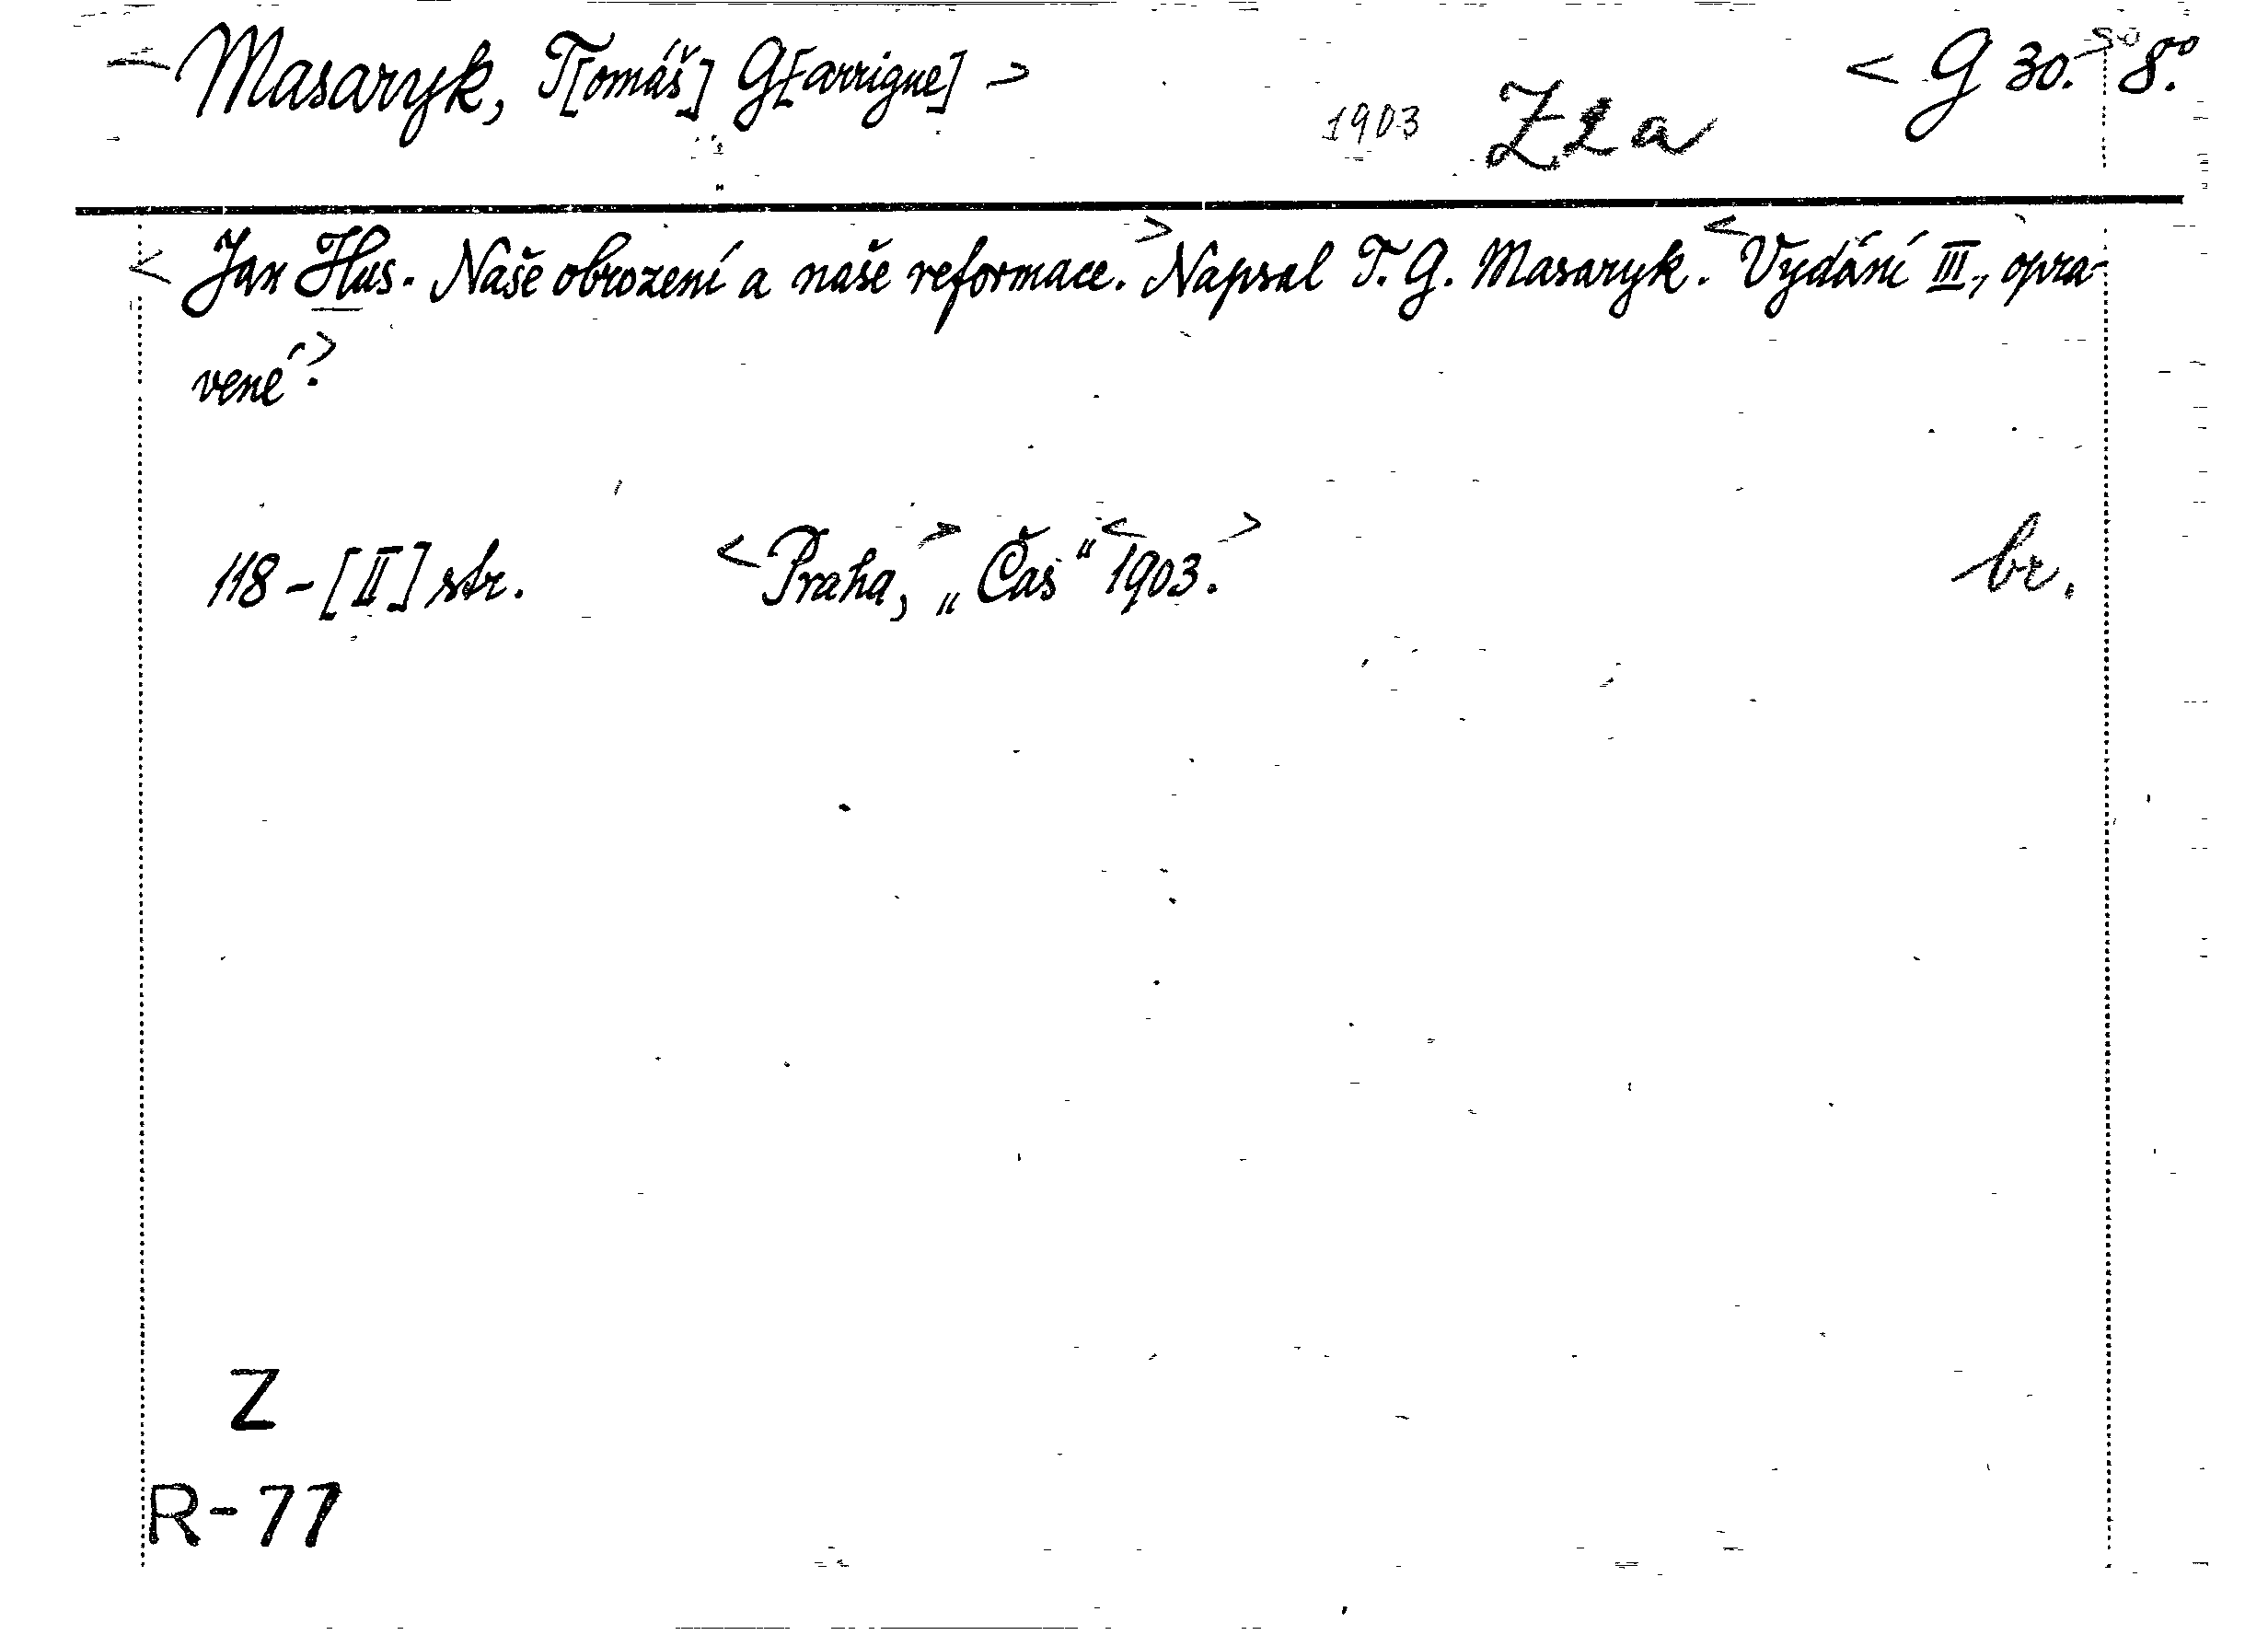 <Masaryk, T[omáš] G[arrigue]> 1903 Z2a <G 30.> 8.º
<Jan Hus. Naše obrození a naše reformace.> Napsal T. G. Masaryk. <Vydání III., opra-
vené.>
118-[II] str. <Praha,> „Čas" <1903.> br.
Z
R-77